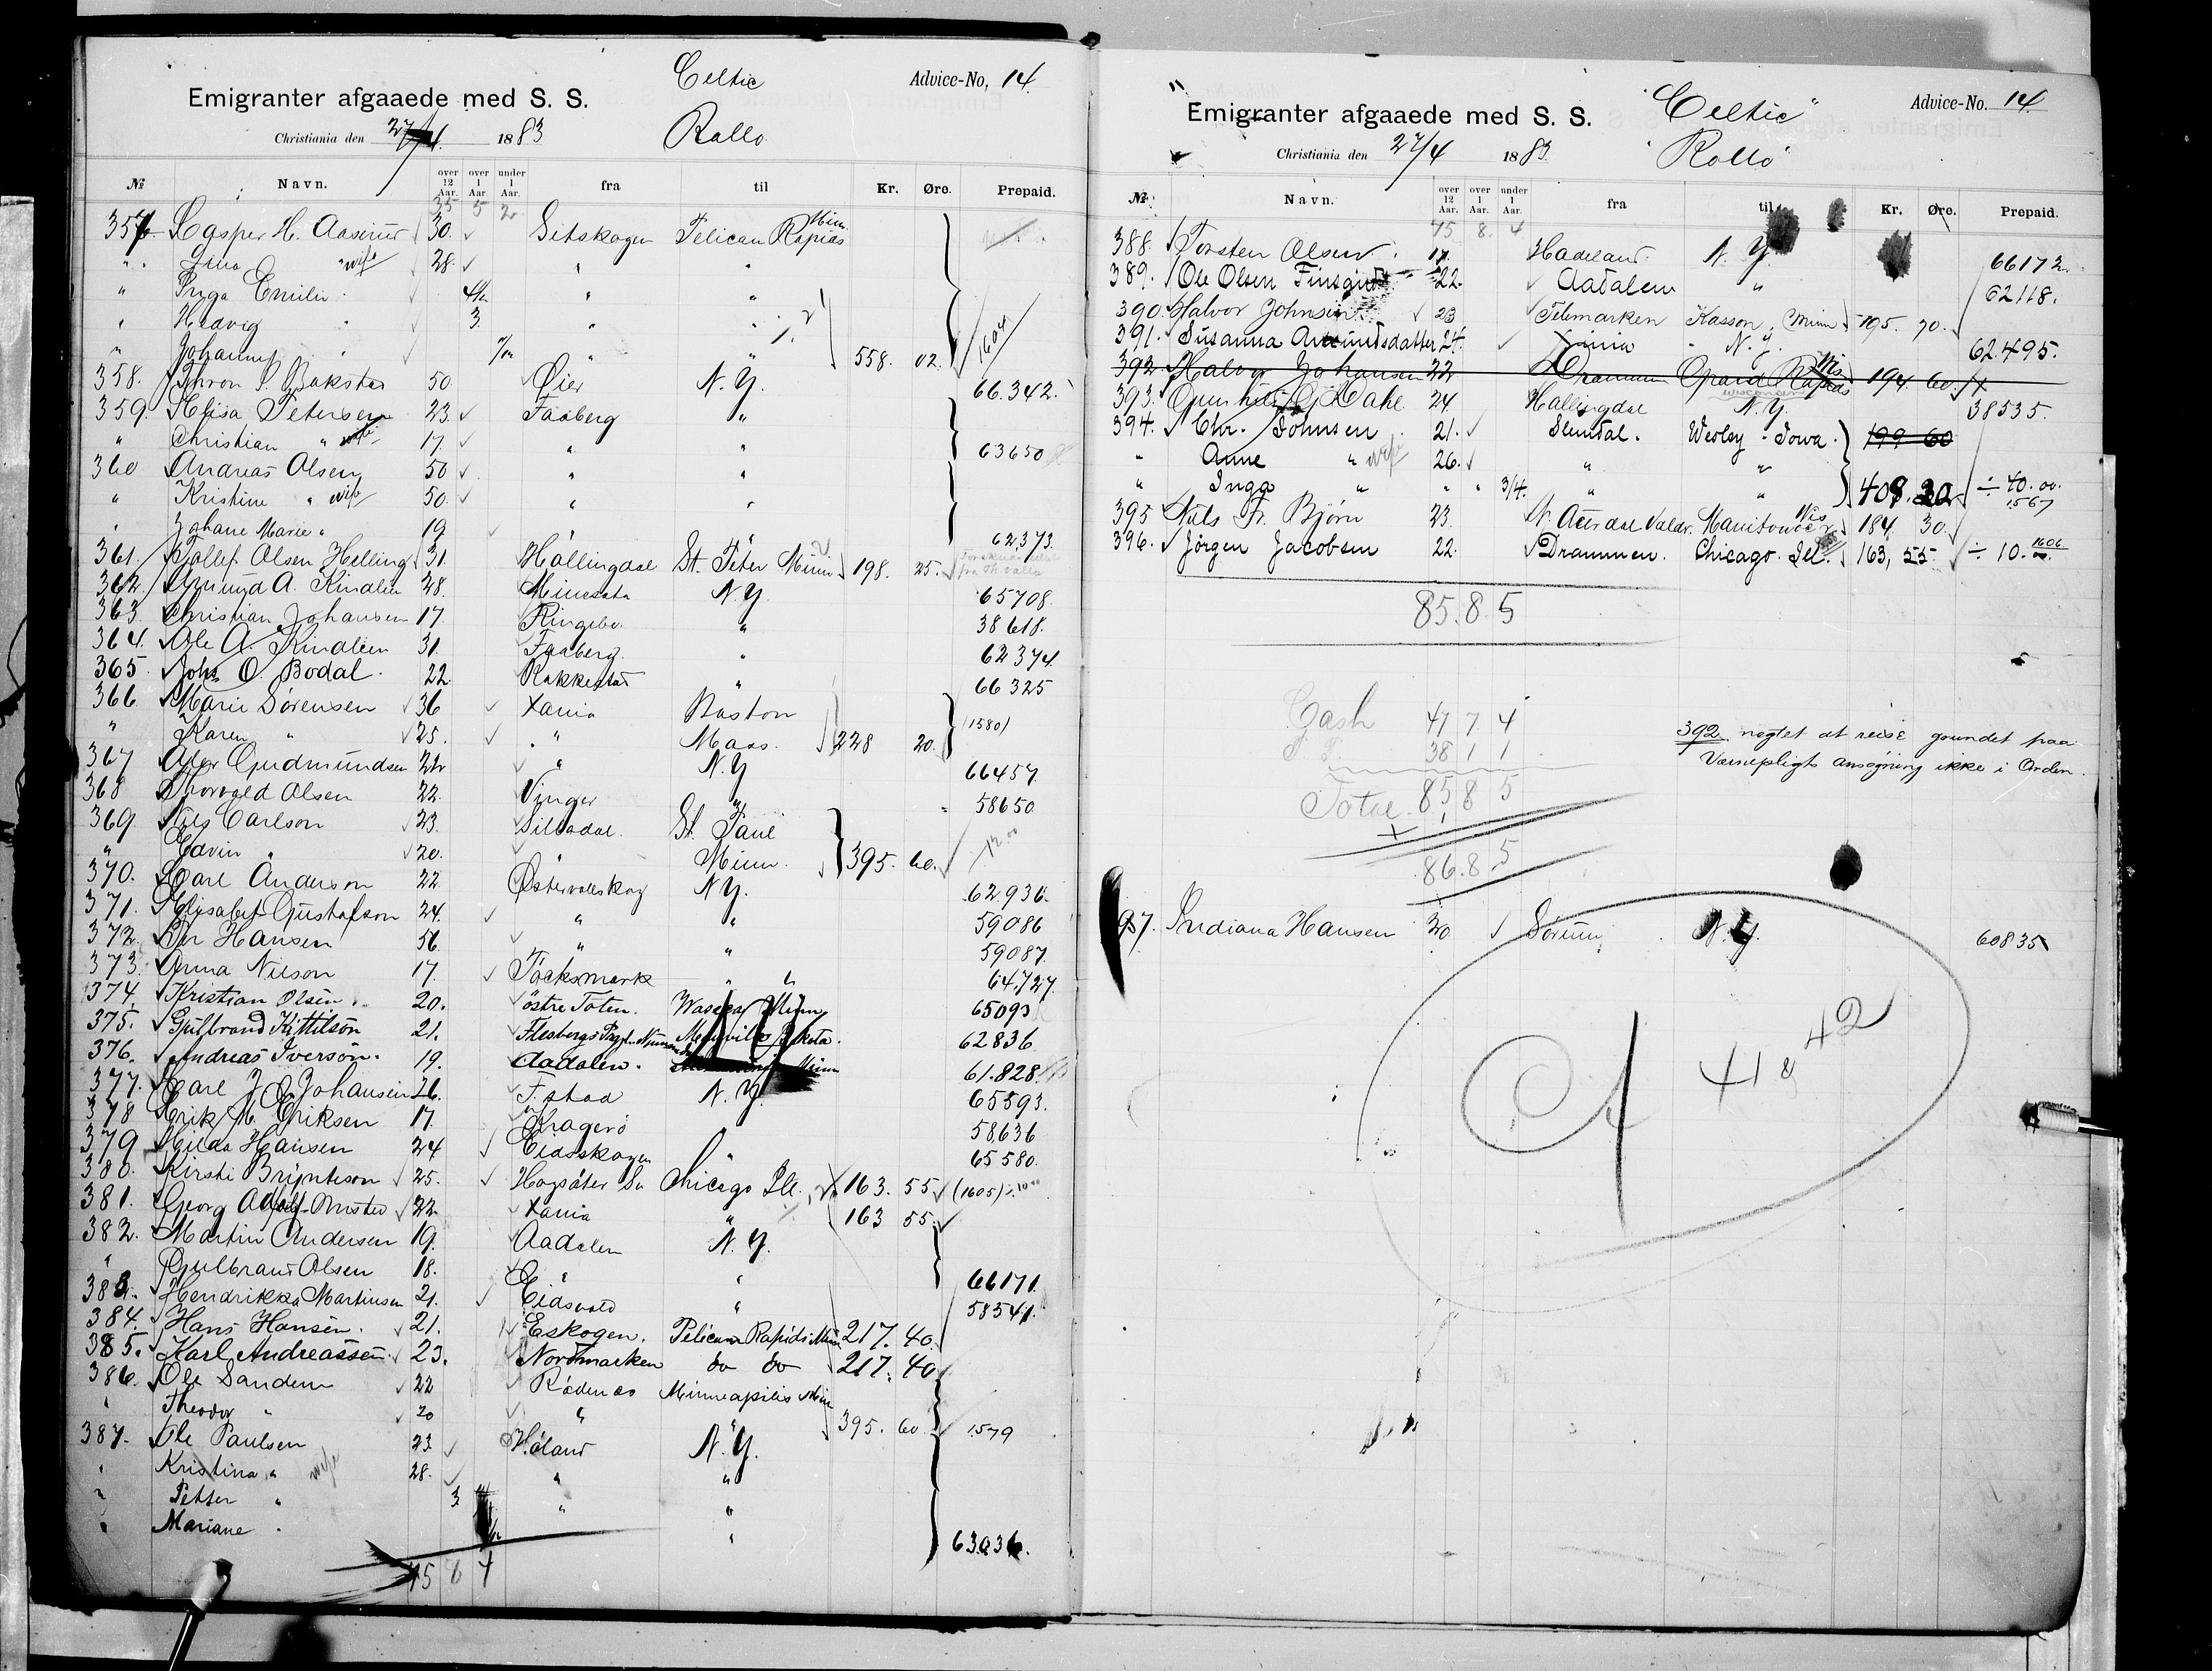 Celtic
Advice-No, 14.
Emigranter afgaaede med S. S.
Christiania den 27/4. 1883
Rollo
№ Navn. over 12 Aar. over 1 Aar. under 1 Aar. fra til Kr. Øre. Prepaid.
35 5 2
357 Casper H. Aaserud 30. Sitskogen Pelican Rapids Minn
" Lina " wife 28. " "
" Inga Emilie 4 " "
" Hedvig " 3. " "
" Johanne " " " 558. 02. 1604
358. Thron P. Bakstad 50. Øier N. Y. 66.342.
359. Elisa Petersen 23. Faaberg "
" Christian " 17. " " 63650
360 Andreas Olsen 50 " "
" Kristine " wife 50. " "
" Johane Marie " 19 " " 62373.
361. Tollef Olsen Helling 31. Hallingdal St. Peter Minn 198. 25.
362. Amund A. Kindlien 28. Minesota N. Y. 65708.
363. Christian Johansen 17. Ringebo. " 38618.
364. Ole A. Kindlien 31. Faaberg. " 62374.
365. Johs O. Bodal. 22. Rakkestad " 66325
366. Marie Sørensen 36 Xania Boston
" Karen " 25. " Mass. 228 20. (1580)
367 Olav Gudmundsen 22 " N. Y 66457
368 Thorvald Olsen 22. Vinger " 58650
369. Nils Carlson 23. Silbodal. St. Paul
" Edvin " 20. " Minn. 395. 60. 12.00
370. Carl Anderson 22 Østervallskog N. Y. 62.936.
371. Elisabet Gustafson 24. " " 59086
372. Per Hansen 56. " " 59087.
373. Anna Nilson 17. Töcksmark " 64,727.
374. Kristian Olsen. 20. östre Toten. Waseca Minn 65093
375. Gulbrand Kittilson 21. Flesbergs Prgj. Numedal 62836.
376. Andreas Iverson. 19. Aadalen. 61.828
377. Carl J. Johansen 26. F.stad N. Y. 65593.
378 Erik M. Eriksen 17. Kragerö 58636
379 Hilda Hansen 24 Eidsskogen " 65580.
380. Kirsti Brynteson 25. Hogsäter Sv Chicago Ill. 163. 55 (1605)
381. Georg Adolf 22 Xania " 163 55.
382. Martin Andersen 19. Aadalen N. Y.
" Gulbrand Olsen 18. " " 66171.
383. Hendrikka Martinsen 21. Eidsvold " 58541.
384. Hans Hansen. 21. Eskogen. Pelican Rapids Minn 217. 40.
385. Karl Andreassen. 23. Nordmarken do do 217. 40
386. Ole Sandem 22 Rödenæs Minneapolis Minn
" Theodor " 20 " " 395. 60. 1579
387. Ole Paulsen 23. Høland N. Y.
" Kristina " wife 28. " "
" Petter " 3 " "
" Mariane " " 63036.
75 8 4
"Celtic"
Advice-No. 14
Emigranter afgaaede med S. S.
Christiania den 27/4 1883.
"Rollo"
№ Navn. over 12 Aar. over 1 Aar. under 1 Aar. fra til Kr. Øre. Prepaid.
75 8. 4
388. Torsten Olsen 17. Hadeland. N. Y. 66172.
389. Ole Olsen 22. Aadalen " 62118.
390. Halvor Johnsen 23 Telemarken Kasson, Minn 195. 70.
391. Susanna Amundsdatter 24. Xania N. Y. 62.495.
392. Halvor Johansen 22 Drammen Grand Rapids Wis. 194 60.
Wisconsin
393. Dahl 24. Hallingdal N. Y. 38535.
394. Chr. Johnsen 21. Slemdal. Wesley Iowa. 199 60
" Anne " wife 26. " "
" Inga " " " 3/4. " " 408. 30 ÷ 40.00. 1567
395 Nils Fr. Bjørn 23. N. Aurdal Valdr. Manitowoc Wis 184. 30.
396. Jörgen Jacobsen 22. Drammen. Chicago Ill. 163, 55 ÷ 10. 1606
85. 8. 5
Cash 47 7 4
P. P. 38 1 1
Total 85 8 5
1
86. 8. 5
392 negtet at reise grundet paa
Værnepligts ansøgning ikke i Orden.
97. Indiana Hansen 30 Sörum N. Y. 60835
A
42